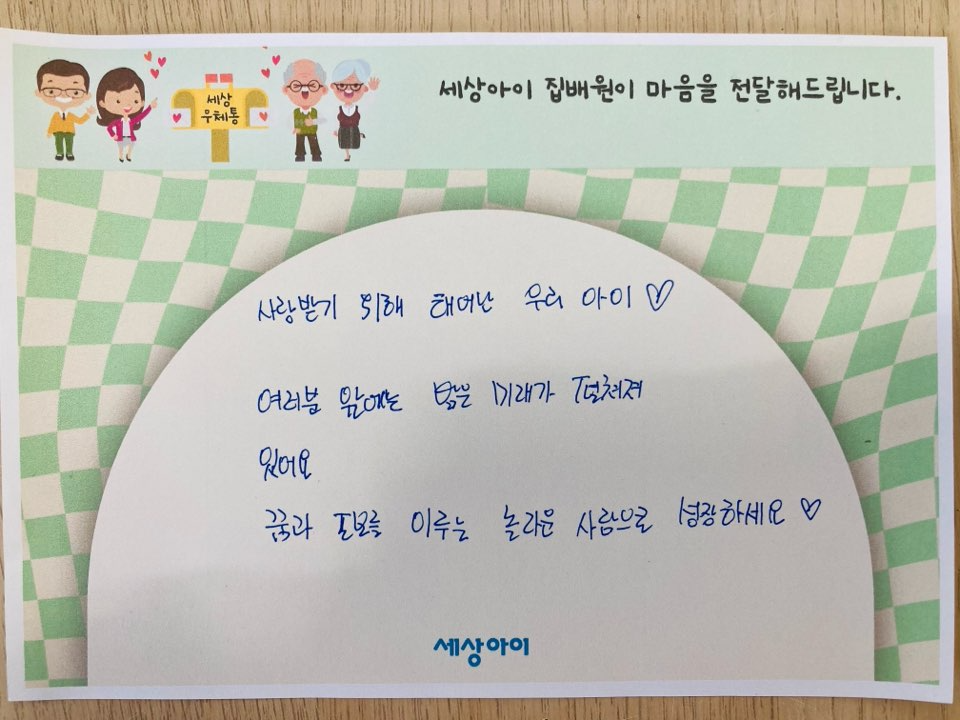 세상아이 집배원이 마음을 전달해드립니다.
세상
우체통
사랑받기 위해 태어난 우리 아이♡
여러분 앞에는 밝은 미래가 펼쳐져
있어요
꿈과 포부를 이루는 놀라운 사람으로 성장하세요♡
세상아이